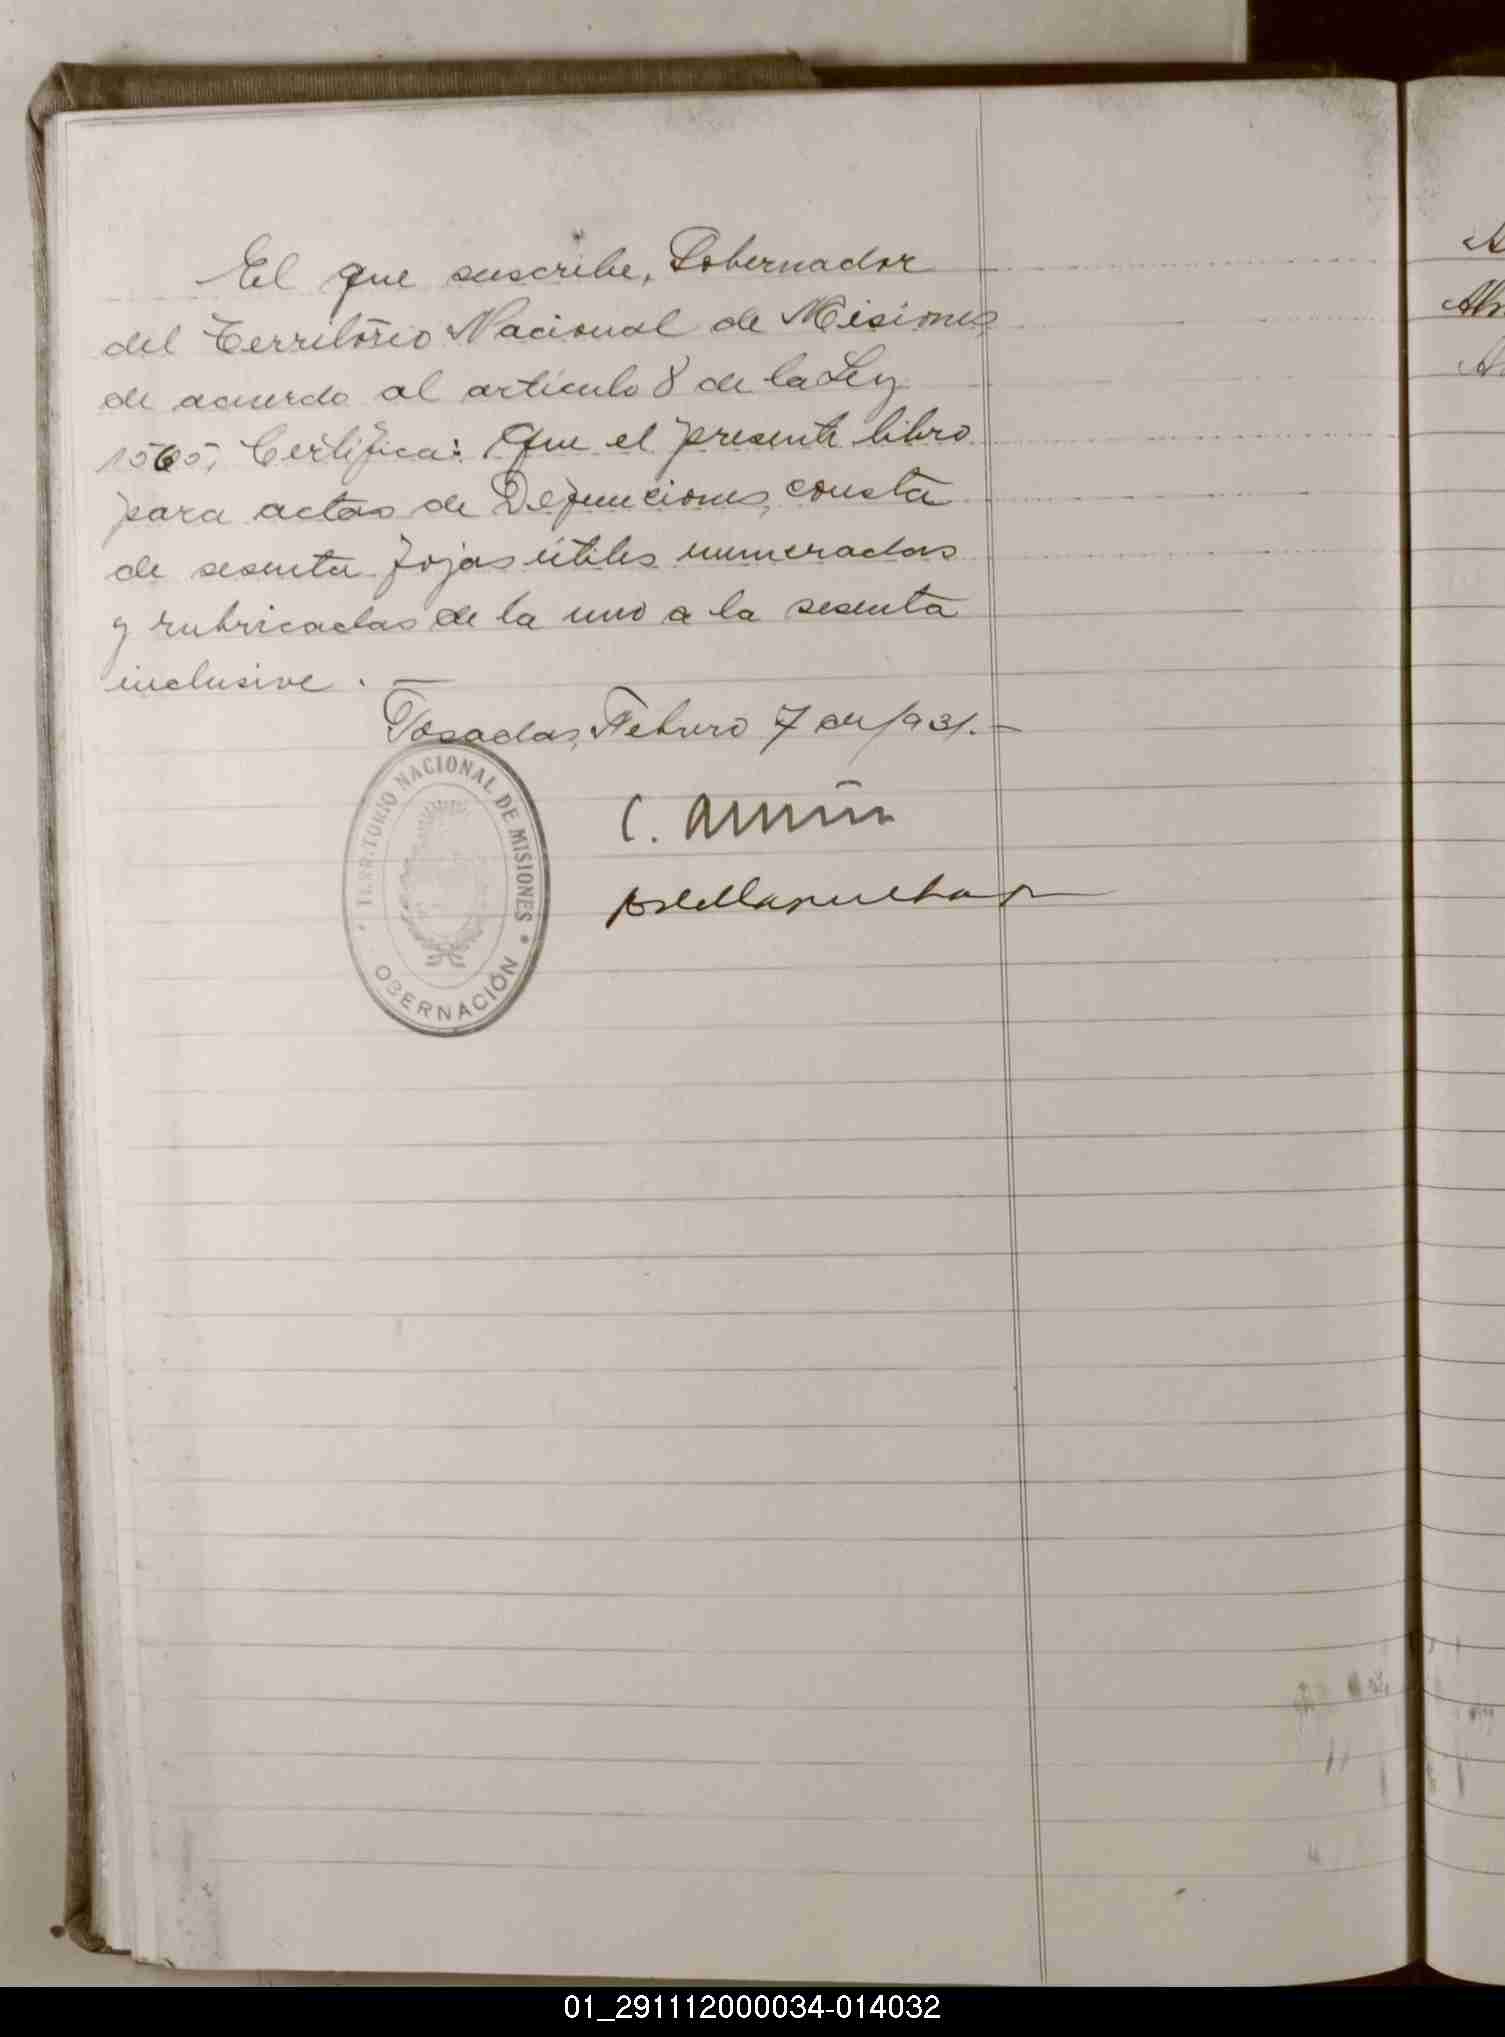 El que suscribe, Gobernador
del Territorio Nacional de Misiones
de acuerdo al artículo 8 de la Ley
1565, Certifica: Que el presente libro
para actas de Defunciones, consta
de sesenta fojas útiles numeradas
y rubricadas de la uno a la sesenta
inclusive. —
Posadas, Febrero 7 de 1931. —
TERRITORIO NACIONAL DE MISIONES
GOBERNACIÓN
01_291112000034-014032